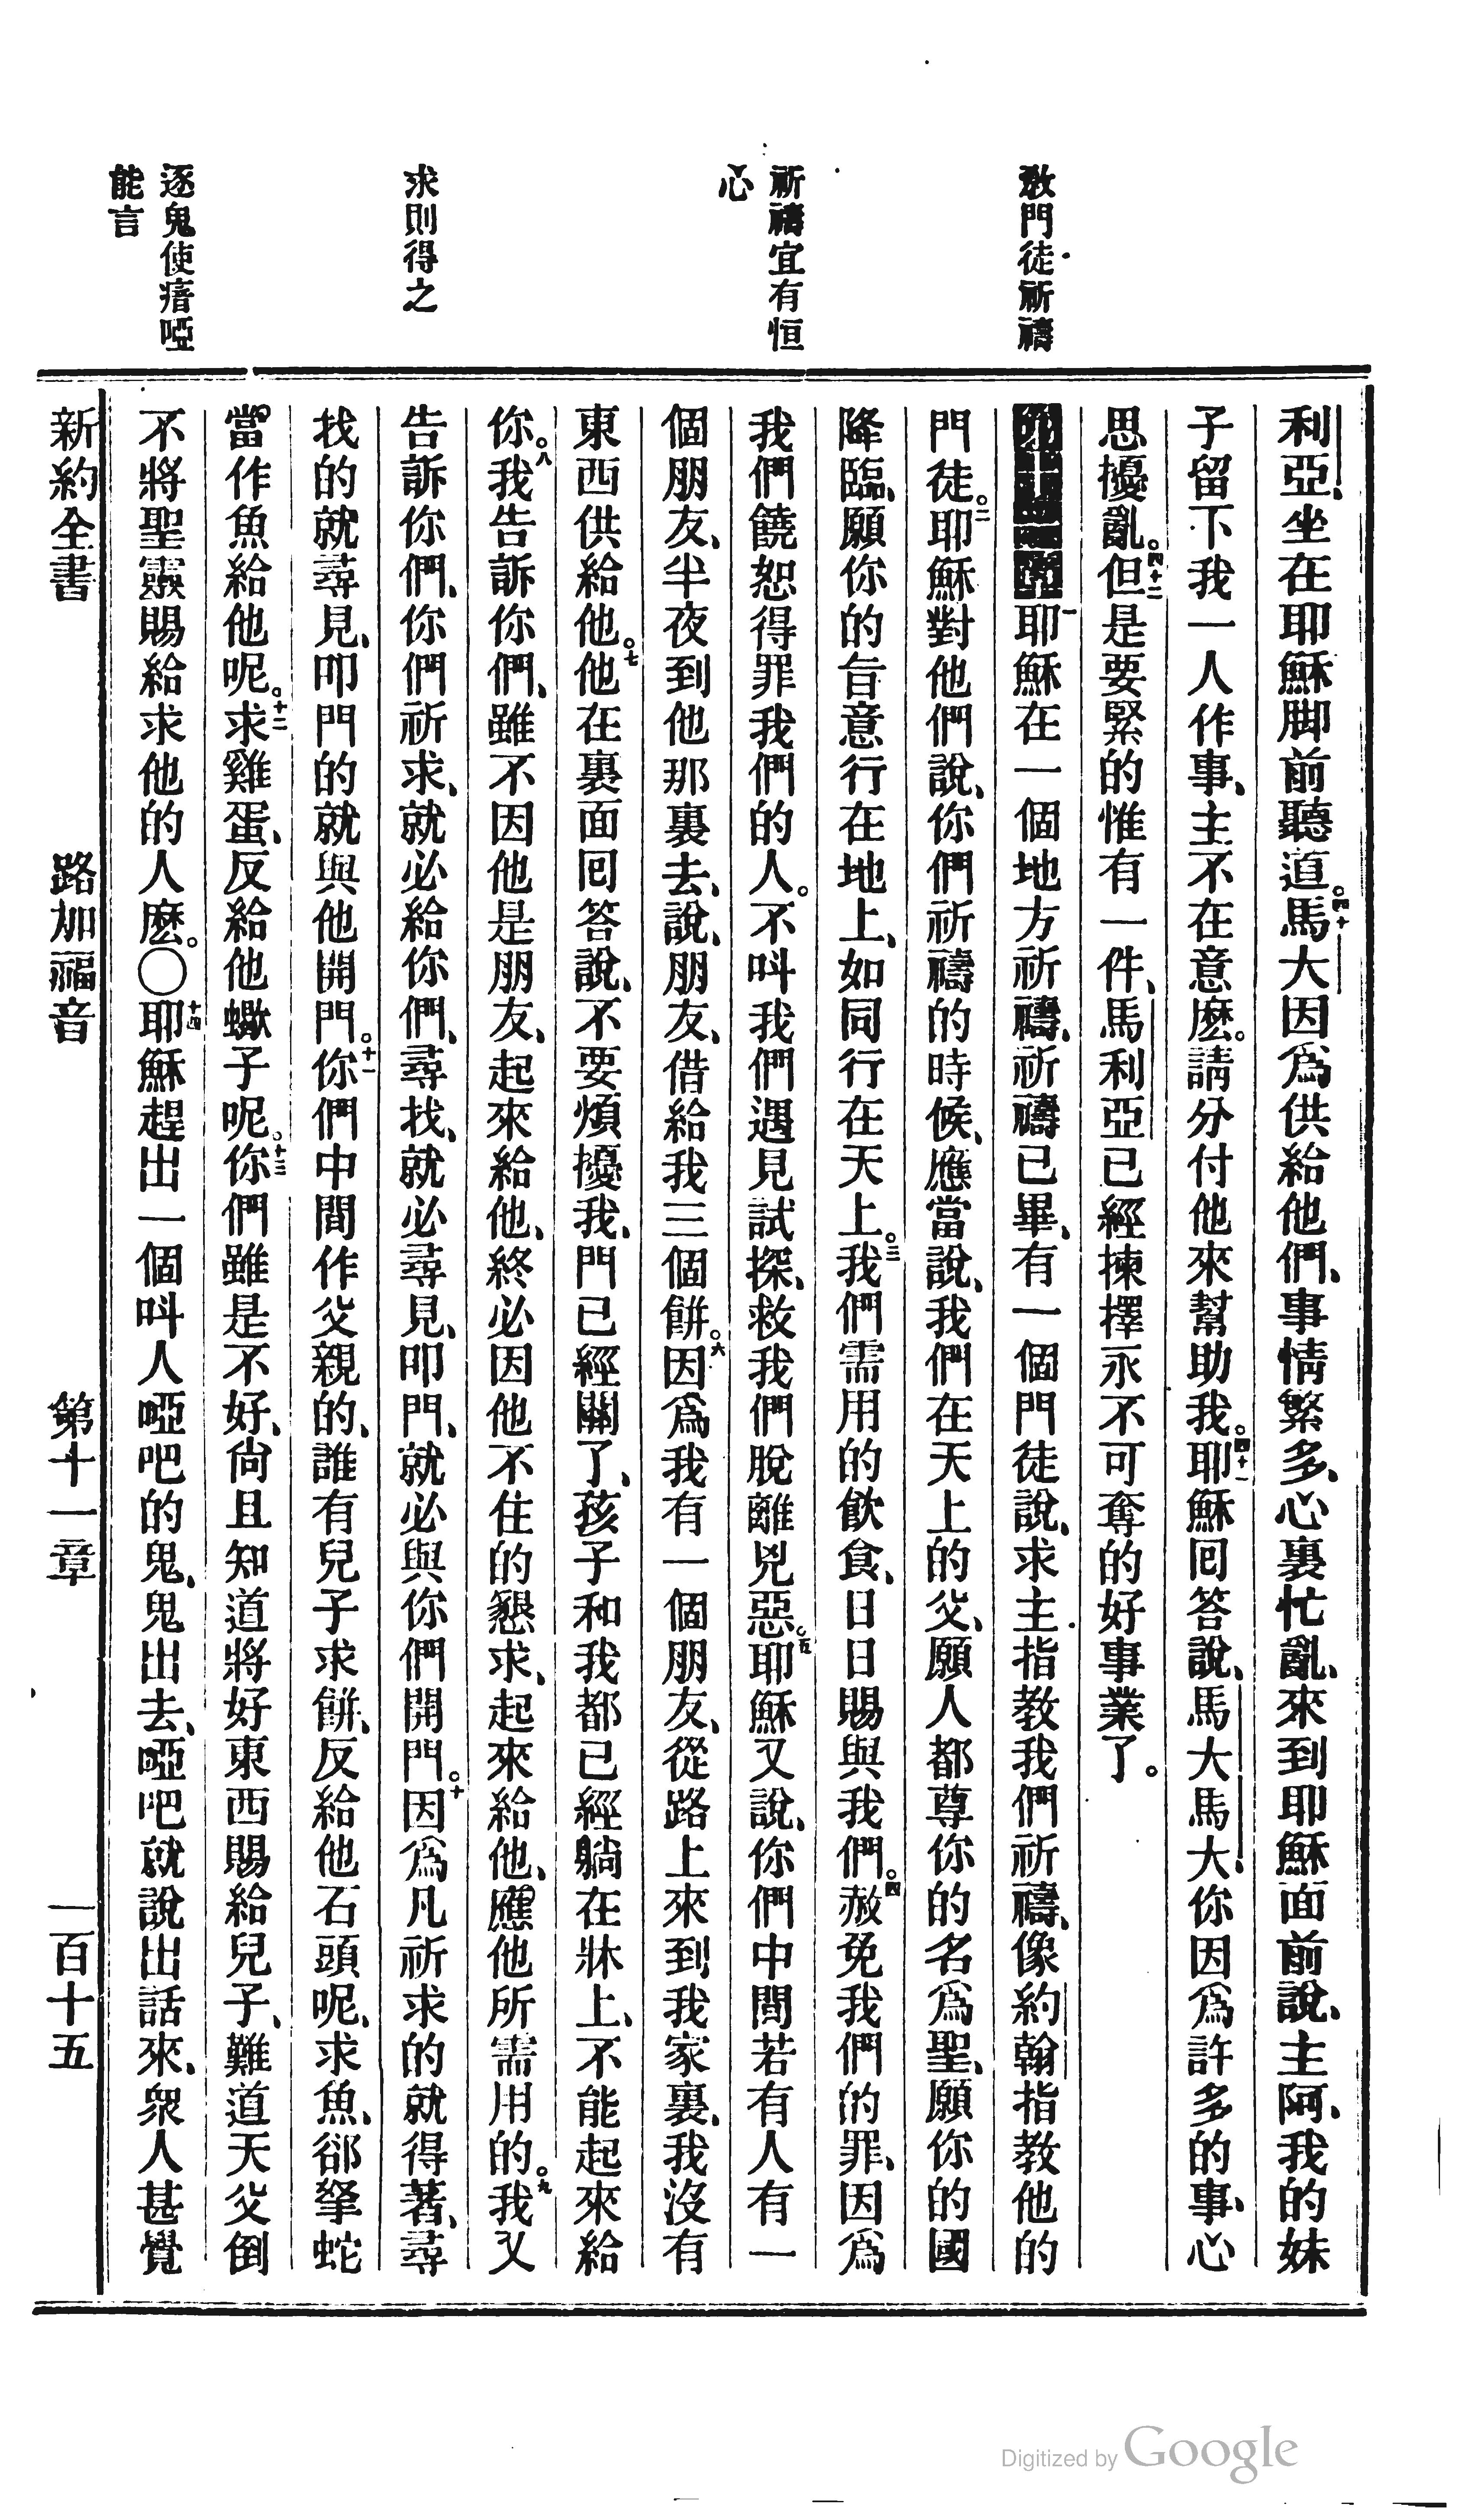 教門徒祈禱
祈禱宜有恒
心
求則得之
逐鬼使瘖啞
能言
利亞、坐在耶穌脚前聽道。四十馬大因爲供給他們、事情繁多、心裏忙亂、來到耶穌面前說、主阿、我的妹
子留下我一人作事、主不在意麽。請分付他來幫助我。四十一耶穌回答說、馬大馬大、你因爲許多的事、心
思擾亂。四十二但是要緊的惟有一件、馬利亞已經揀擇永不可奪的好事業了。
一耶穌在一個地方祈禱、祈禱已畢、有一個門徒說、求主指教我們祈禱、像約翰指教他的
門徒。二耶穌對他們說、你們祈禱的時候、應當說、我們在天上的父、願人都尊你的名爲聖、願你的國
降臨、願你的旨意行在地上、如同行在天上。三我們需用的飲食、日日賜與我們。四赦免我們的罪、因爲
我們饒恕得罪我們的人。不呌我們遇見試探、救我們脫離兇惡。五耶穌又說、你們中間若有人有一
個朋友、半夜到他那裏去、說、朋友、借給我三個餅。六因爲我有一個朋友、從路上來到我家裏、我沒有
東西供給他。七他在裏面回答說、不要煩擾我、門已經關了、孩子和我都已經躺在牀上、不能起來給
你。八我告訴你們、雖不因他是朋友、起來給他、終必因他不住的懇求、起來給他、應他所需用的。九我又
告訴你們、你們祈求、就必給你們、尋找、就必尋見、叩門、就必與你們開門。十因爲凡祈求的就得著、尋
找的就尋見、叩門的就與他開門。十一你們中間作父親的、誰有兒子求餅、反給他石頭呢、求魚、卻拏蛇
當作魚給他呢。十二求雞蛋、反給他蠍子呢。十三你們雖是不好、尙且知道將好東西賜給兒子、難道天父倒
不將聖靈賜給求他的人麽。〇十四耶穌趕出一個呌人啞吧的鬼、鬼出去、啞吧就說出話來、衆人甚覺
新約全書 路加福音 第十一章 一百十五
Digitized by Google